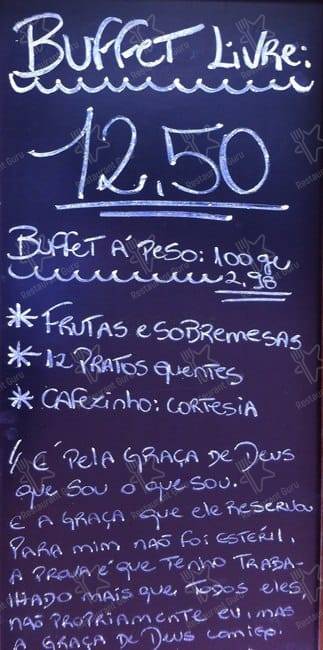 BUFFET LIVRE:
12,50
BUFFET A' PESO: 100gr
2,98
* FRUTAS e SOBREMESAS
* 12 PRATOS QUENTES
* CAFEZINHO: CORTESIA
E' PELA GRAÇA DE DEUS
QUE SOU O QUE SOU.
E A GRAÇA QUE ELE RESERVOU
PARA MIM NÃO FOI ESTÉRIL,
A PROVA É QUE TENHO TRABA-
LHADO MAIS QUE TODOS ELES
NÃO PROPRIAMENTE EU, MAS
A GRAÇA DE DEUS COMIGO.
Restaurant Guru